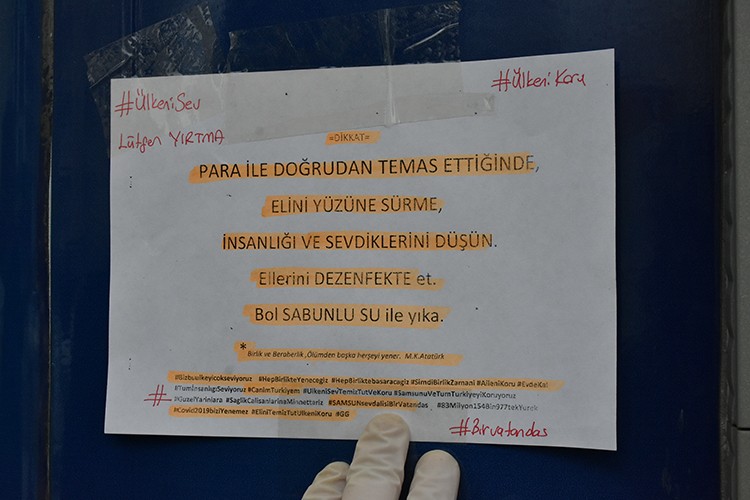 #ÜlkeniSev
#Ülkeni Koru
Lütfen YIRTMA
=DİKKAT=
PARA İLE DOĞRUDAN TEMAS ETTİĞİNDE,
ELİNİ YÜZÜNE SÜRME,
İNSANLIĞI VE SEVDİKLERİNİ DÜŞÜN.
Ellerini DEZENFEKTE et.
Bol SABUNLU SU ile yıka.
* Birlik ve Beraberlik ,Ölümden başka herşeyi yener. M.K.Atatürk
#Bizbuulkeyicokseviyoruz #HepBirlikteYenecegiz #HepBirliktebasaracagiz #SimdiBirlikZamani #AileniKoru #EvdeKal
#TumInsanligiSeviyoruz #CanimTurkiyem #UlkeniSevTemizTutVeKoru #SamsunuVeTumTurkiyeyiKoruyoruz
#GuzelYarinlara #SaglikCalisanlarinaMinnettariz #SAMSUNsevdalisiBirVatandas #83Milyon154Bin977tekYurek
#Covid2019biziYenemez #EliniTemizTutUlkeniKoru #GG
#
#Birvatandas